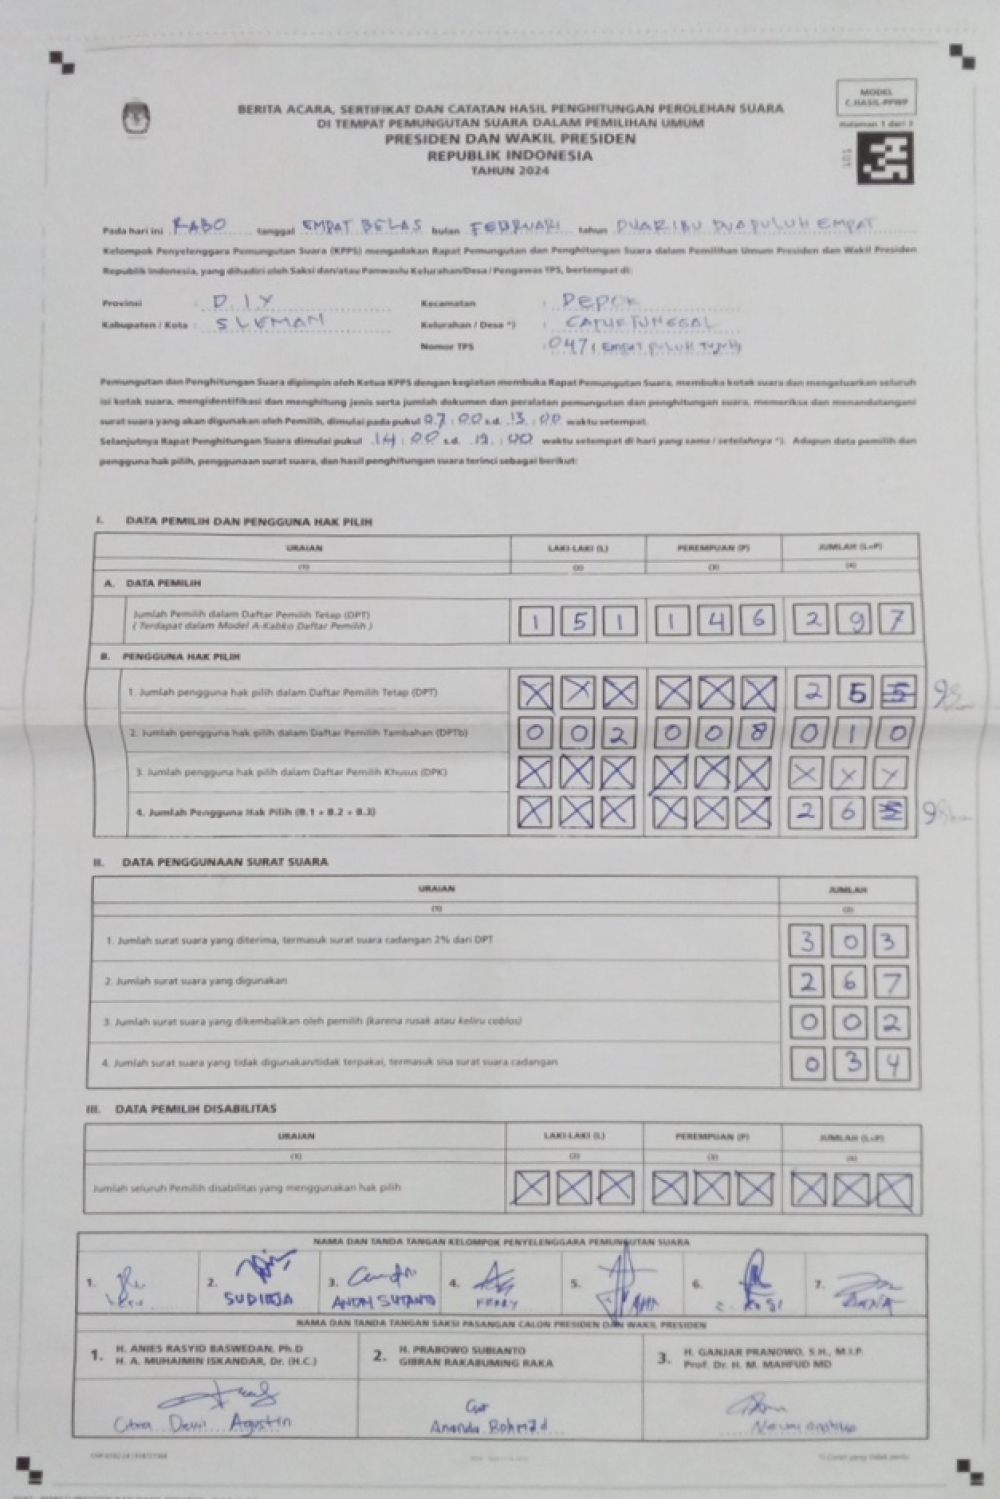 MODEL
C.HASIL-PPWP
Halaman 1 dari 3
101
BERITA ACARA, SERTIFIKAT DAN CATATAN HASIL PENGHITUNGAN PEROLEHAN SUARA
DI TEMPAT PEMUNGUTAN SUARA DALAM PEMILIHAN UMUM
PRESIDEN DAN WAKIL PRESIDEN
REPUBLIK INDONESIA
TAHUN 2024
Pada hari ini RABO tanggal EMPAT BELAS bulan FEBRUARI tahun DUARIBU DUAPULUH EMPAT
Kelompok Penyelenggara Pemungutan Suara (KPPS) mengadakan Rapat Pemungutan dan Penghitungan Suara dalam Pemilihan Umum Presiden dan Wakil Presiden
Republik Indonesia, yang dihadiri oleh Saksi dan/atau Panwaslu Kelurahan/Desa / Pengawas TPS, bertempat di:
Provinsi : D.I.Y Kecamatan : DEPOK
Kabupaten / Kota : SLEMAN Kelurahan / Desa *) : CATURTUNGGAL
Nomor TPS : 047 ( EMPAT PULUH TUJUH
Pemungutan dan Penghitungan Suara dipimpin oleh Ketua KPPS dengan kegiatan membuka Rapat Pemungutan Suara, membuka kotak suara dan mengeluarkan seluruh
isi kotak suara, mengidentifikasi dan menghitung jenis serta jumlah dokumen dan peralatan pemungutan dan penghitungan suara, memeriksa dan menandatangani
surat suara yang akan digunakan oleh Pemilih, dimulai pada pukul 07 : 00 s.d. 13 : 00 waktu setempat.
Selanjutnya Rapat Penghitungan Suara dimulai pukul 14 : 00 s.d. 19 : 00 waktu setempat di hari yang sama / setelahnya *). Adapun data pemilih dan
pengguna hak pilih, penggunaan surat suara, dan hasil penghitungan suara terinci sebagai berikut:
I. DATA PEMILIH DAN PENGGUNA HAK PILIH
URAIAN LAKI-LAKI (L) PEREMPUAN (P) JUMLAH (L+P)
(1) (2) (3) (4)
A. DATA PEMILIH
Jumlah Pemilih dalam Daftar Pemilih Tetap (DPT)
( Terdapat dalam Model A-Kabko Daftar Pemilih ) 1 5 1 1 4 6 2 9 7
B. PENGGUNA HAK PILIH
1. Jumlah pengguna hak pilih dalam Daftar Pemilih Tetap (DPT) X X X X X X 2 5 5
2. Jumlah pengguna hak pilih dalam Daftar Pemilih Tambahan (DPTb) 0 0 2 0 0 8 0 1 0
3. Jumlah pengguna hak pilih dalam Daftar Pemilih Khusus (DPK) X X X X X X X X X
4. Jumlah Pengguna Hak Pilih (B.1 + B.2 + B.3) X X X X X X 2 6 5
II. DATA PENGGUNAAN SURAT SUARA
URAIAN JUMLAH
(1) (2)
1. Jumlah surat suara yang diterima, termasuk surat suara cadangan 2% dari DPT 3 0 3
2. Jumlah surat suara yang digunakan 2 6 7
3. Jumlah surat suara yang dikembalikan oleh pemilih (karena rusak atau keliru coblos) 0 0 2
4. Jumlah surat suara yang tidak digunakan/tidak terpakai, termasuk sisa surat suara cadangan 0 3 4
III. DATA PEMILIH DISABILITAS
URAIAN LAKI-LAKI (L) PEREMPUAN (P) JUMLAH (L+P)
(1) (2) (3) (4)
Jumlah seluruh Pemilih disabilitas yang menggunakan hak pilih X X X X X X X X X
NAMA DAN TANDA TANGAN KELOMPOK PENYELENGGARA PEMUNGUTAN SUARA
1. 2. 3. 4. 5. 6. 7.
SUDIRJA ANDRI SUTANTO FERRY
NAMA DAN TANDA TANGAN SAKSI PASANGAN CALON PRESIDEN DAN WAKIL PRESIDEN
1. H. ANIES RASYID BASWEDAN, Ph.D
H. A. MUHAIMIN ISKANDAR, Dr. (H.C.)
2. H. PRABOWO SUBIANTO
GIBRAN RAKABUMING RAKA
3. H. GANJAR PRANOWO, S.H., M.I.P.
Prof. Dr. H. M. MAHFUD MD
Citra Devi Agustin Ananda Rohmad
*) Coret yang tidak perlu